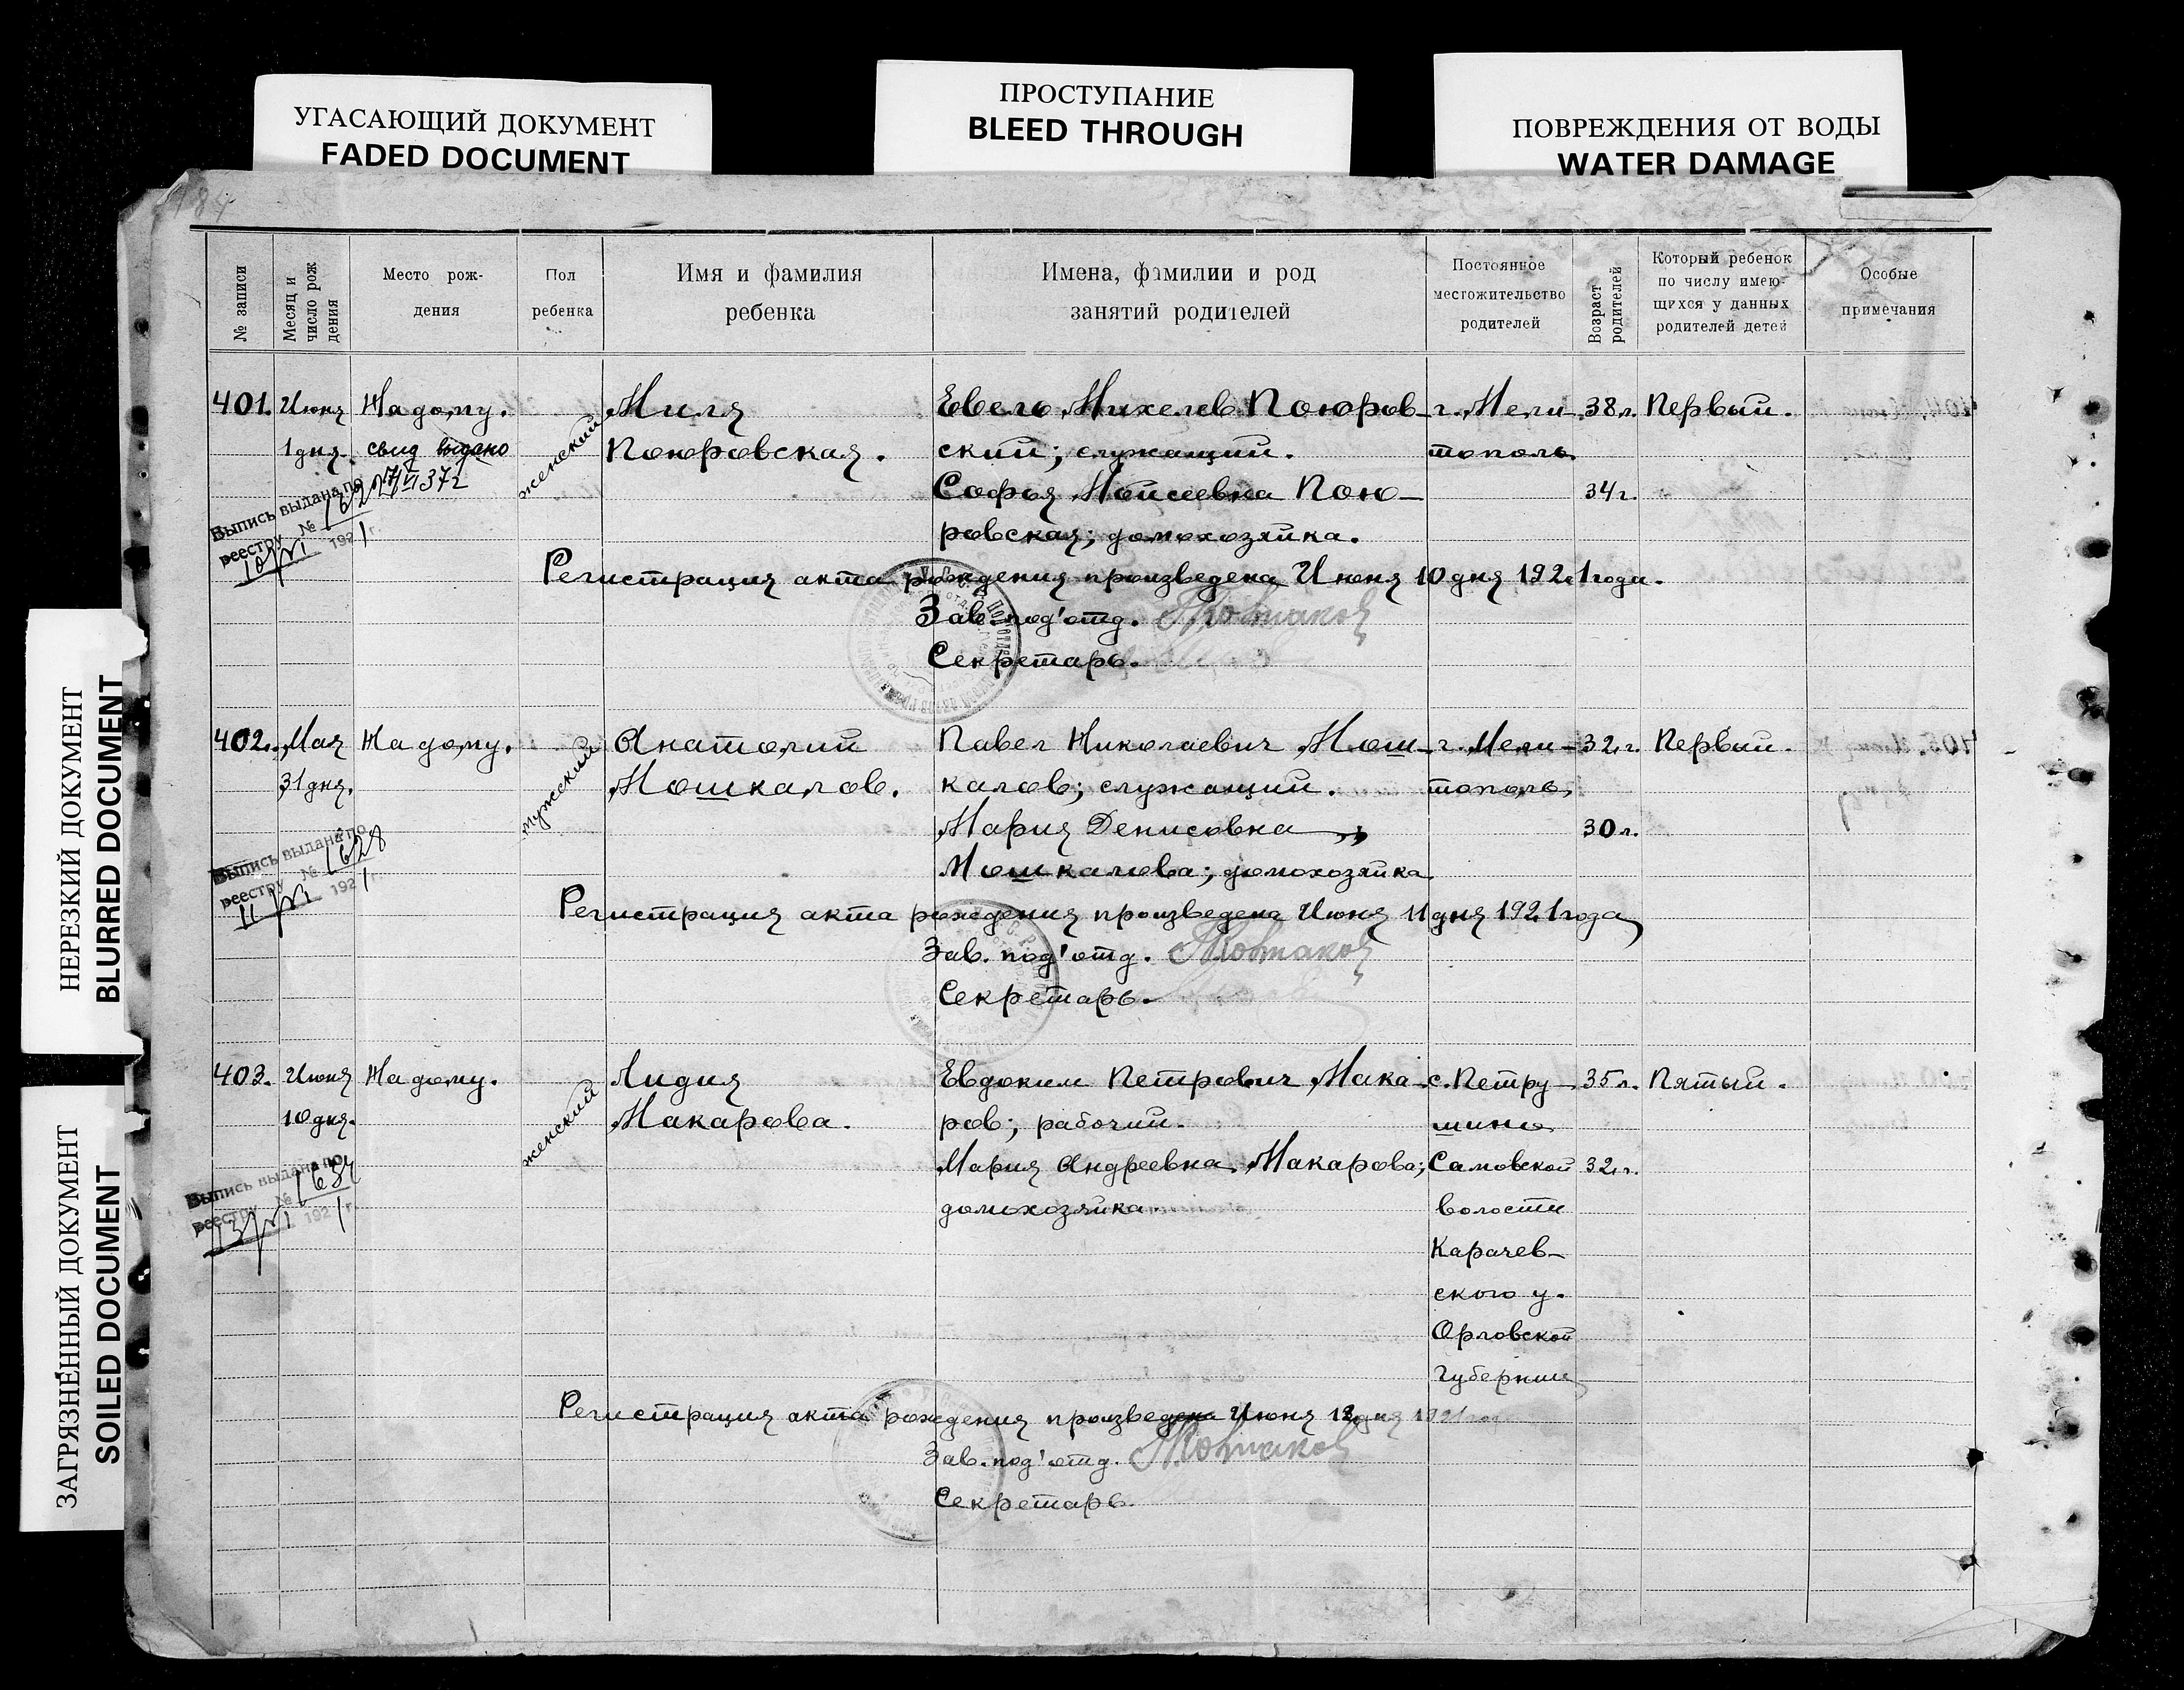 УГАСАЮЩИЙ ДОКУМЕНТ
FADED DOCUMENT
ПРОСТУПАНИЕ
BLEED THROUGH
ПОВРЕЖДЕНИЯ ОТ ВОДЫ
WATER DAMAGE
НЕРЕЗКИЙ ДОКУМЕНТ
BLURRED DOCUMENT
ЗАГРЯЗНЕННЫЙ ДОКУМЕНТ
SOILED DOCUMENT
№ записи
Месяц и
число рож
дения
Место рож-
дения
Пол
ребенка
Имя и фамилия
ребенка
Имена, фамилии и род
занятий родителей
Постоянное
местожительство
родителей
Возраст
родителей
Который ребенок
по числу имею-
щихся у данных
родителей детей
Особые
примечания
401. Июня На дому. женский Миля Евель Михелев Поюров- г. Мели- 38 л. Первый.
1 дня. свид выдано Поюровская. ский; служащий. тополь
Софья Моисеевна Пою- 34 г.
ровская; домохозяйка.
Выпись выдана по
реестру № 192 1 г.
Регистрация акта рождения произведена Июня 10 дня 1921 года.
Зав. под'отд.
Секретарь.
402. Мая На дому. мужский Анатолий Павел Николаевич Мош- г. Мели- 32 г. Первый.
31 дня. Мошкалов. калов; служащий. тополь
Мария Денисовна 30 л.
Мошкалова; домохозяйка
Выпись выдана по
реестру № 1628 192 1
11/VI
Регистрация акта рождения произведена Июня 11 дня 1921 года
Зав. под'отд.
Секретарь.
403. Июня На дому. женский Лидия Евдоким Петрович Мака- с. Петру- 35 л. Пятый.
10 дня. Макарова. ров; рабочий. шино
Мария Андреевна Макарова; Самовской 32 г.
домохозяйка. волости
Карачев-
ского у.
Орловской
губернии
Выпись выдана по
реестру № 192 1 г.
Регистрация акта рождения произведена Июня дня 1921
Зав. под'отд.
Секретарь.